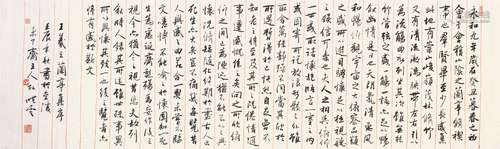 永和九年歲在癸丑暮春之初
會于會稽山陰之蘭亭脩禊
事也群賢畢至少長咸集
此地有崇山峻領茂林脩竹
又有清流激湍映帶左右引以
為流觴曲水列坐其次雖無絲
竹管弦之盛一觴一詠亦足以暢
敘幽情是日也天朗氣清惠風
和暢仰觀宇宙之大俯察品類
之盛所以遊目騁懷足以極視聽
之娛信可樂也夫人之相與俯仰
一世或取諸懷抱悟言一室之內
或因寄所託放浪形骸之外雖
趣舍萬殊靜躁不同當其欣
於所遇暫得於己快然自足不知
老之將至及其所之既倦情隨
事遷感慨係之矣向之所欣俛仰
之間以為陳迹猶不能不以之興
懷況脩短隨化終期於盡古人云
死生亦大矣豈不痛哉每攬昔
人興感之由若合一契未嘗不臨
文嗟悼不能喻之於懷固知一死
生為虛誕齊彭殤為妄作後之
視今亦猶今之視昔悲夫故列
敘時人錄其所述雖世殊事異
所以興懷其致一也後之攬者亦
將有感於斯文
王羲之蘭亭集序
壬辰年秋書於
齋主人